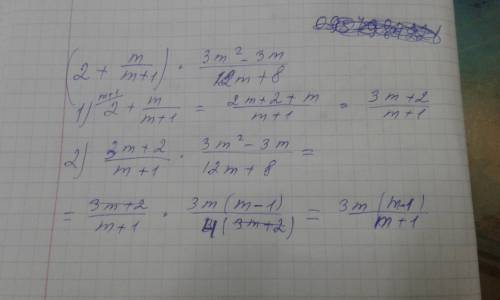 (2 + m/(m+1)) · (3m² - 3m)/(12m + 8)
1) 2^(m+1) + m/(m+1) = (2m + 2 + m)/(m+1) = (3m + 2)/(m+1)
2) (3m + 2)/(m+1) · (3m² - 3m)/(12m + 8) =
= (3m + 2)/(m+1) · 3m(m-1)/(4(3m+2)) = 3m(m-1)/(m+1)